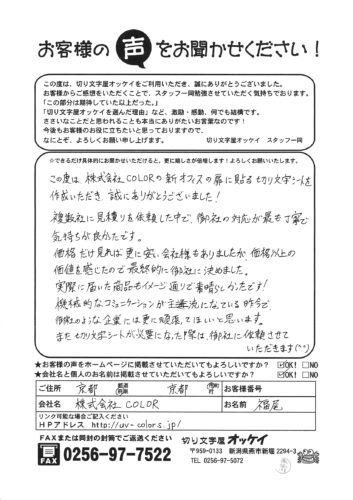 お客様の声をお聞かせください！
この度は、切り文字屋オッケイをご利用いただき、誠にありがとうございました。
お客様からご感想をいただくことで、スタッフ一同勉強させていただく気持ちでおります。
「この部分は期待していた以上だった。」
「切り文字屋オッケイを選んだ理由」など、激励・感動、何でも結構です。
ささいなことだと思われることも本当にありがたいお言葉なのです！
今後もお客様のお役に立ちたいと思っておりますので、
なにとぞ、よろしくお願い申し上げます。 切り文字屋オッケイ スタッフ一同
☆できるだけ具体的にお聞かせいただけると、更に嬉しさが倍増します！よろしくお願いいたします。
この度は、株式会社COLORの新オフィスの扉に貼る切り文字シートを
作成いただき、誠にありがとうございました！
複数社に見積りを依頼した中で、御社の対応が最も丁寧で
気持ちが良かたです。
価格だけ見れば更に安い会社様もありましたが、価格以上の
価値を感じたので最終的に御社に決めました。
実際に届いた商品もイメージ通りで素晴らしかたです！
機械的なコミュニケーションが主流になている昨今で、
御社のような企業には更に頑張てほしいと思います。
また切り文字シートが必要になた際は、御社に依頼させて
いただきます(^^)
★お客様の声をホームページに掲載させていただいてもよろしいですか？ ☑OK! □NO
★会社名と個人のお名前も掲載させていただいてもよろしいですか？ ☑OK! □NO
ご住所 京都 京都 お客様番号
会社名 株式会社COLOR お名前 福尾
リンク可能な場合ご記入ください
HPアドレス http://uv-colors.jp/
FAXまたは同封の封筒でご返送ください
FAX 0256-97-7522
切り文字屋オッケイ
〒959-0133 新潟県燕市新堀 2294-3
TEL 0256-97-5072